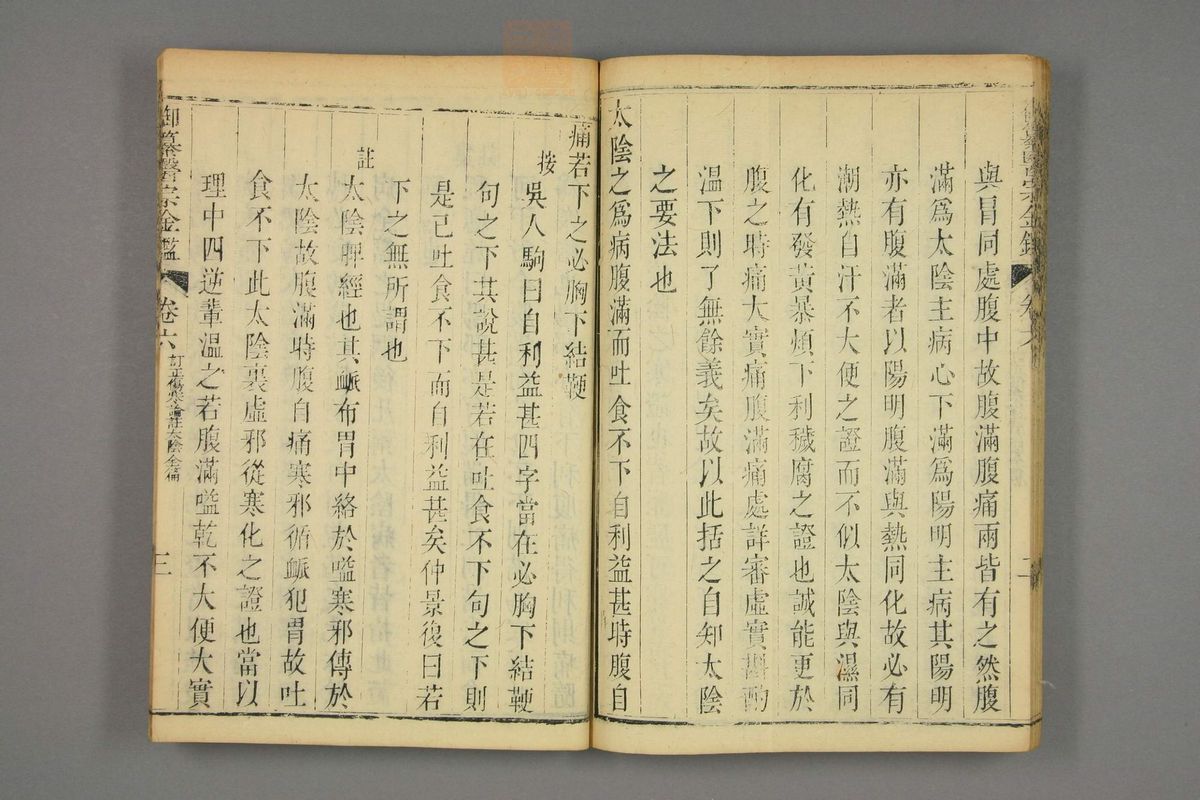 與胃同處腹中故腹滿腹痛兩皆有之然腹
滿爲太陰主病心下滿爲陽明主病其陽明
亦有腹滿者以陽明腹滿與熱同化故必有
潮熱自汗不大便之證而不似太陰與濕同
化有發黃暴煩下利穢腐之證也誠能更於
腹之時痛大實痛腹滿痛處詳審虛實斟酌
温下則了無餘義矣故以此括之自知太陰
之要法也
太陰之爲病腹滿而吐食不下自利益甚時腹自
痛若下之必胸下結鞕
按吳人駒曰自利益甚四字當在必胸下結鞕
句之下其說甚是若在吐食不下句之下則
是已吐食不下而自利益甚矣仲景復曰若
下之無所謂也
註太陰脾經也其脈布胃中絡於嗌寒邪傳於
太陰故腹滿時腹自痛寒邪循脈犯胃故吐
食不下此太陰裏虛邪從寒化之證也當以
理中四逆輩温之若腹滿嗌乾不大便大實
御纂醫宗金鑑 卷六 訂正傷寒論註太陰全篇 三